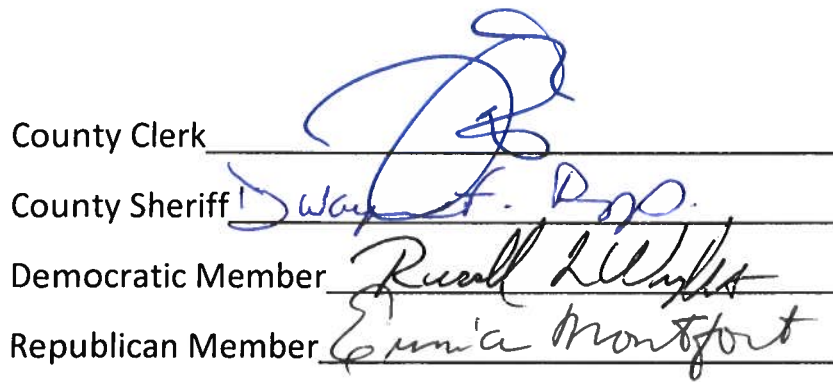 County Clerk
County Sheriff Dwayne F.
Democratic Member Russell L Wright
Republican Member Eunice Montfort